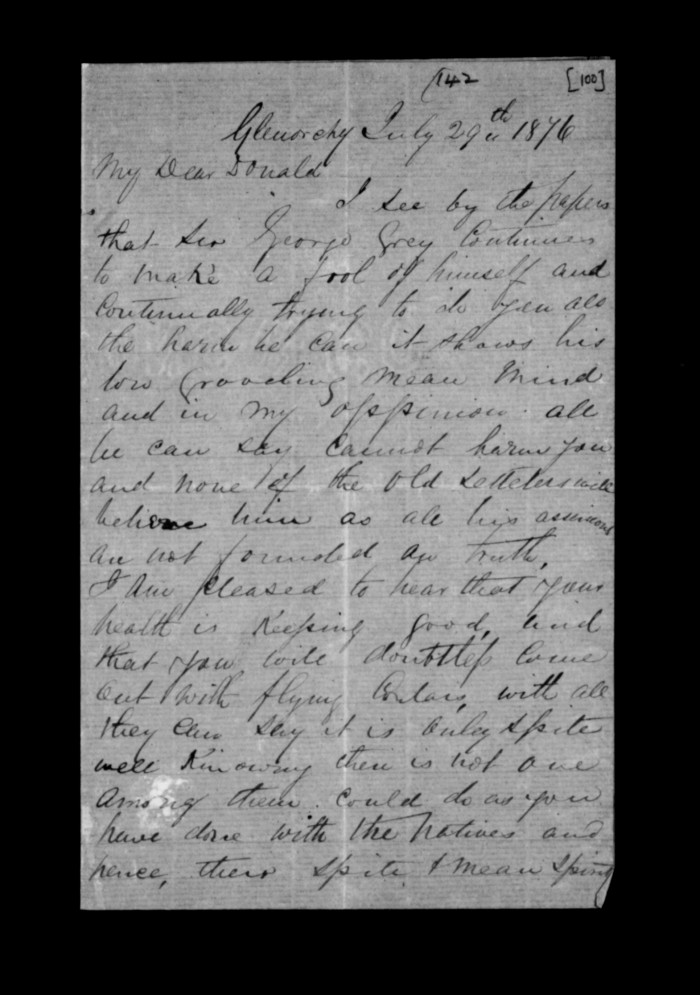 (142 [100]
Glenorchy July 29th 1876
My Dear Donald
I see by the papers
that Sir George Grey Continues
to make a fool of himself and
Continually trying to do you all
the harm he can it shows his
low Grovelling mean Mind
and in my oppinion all
he can say cannot harm you
and none of the Old Settelers will
believe him as all his assertions
are not founded on truth,
I am pleased to hear that your
health is Keeping good, and
that you will doubtless Come
out with flying Coulars, with all
they can say it is only spite
well Knowing there is not one
among them could do as you
have done with the Natives and
hence, there spite & mean